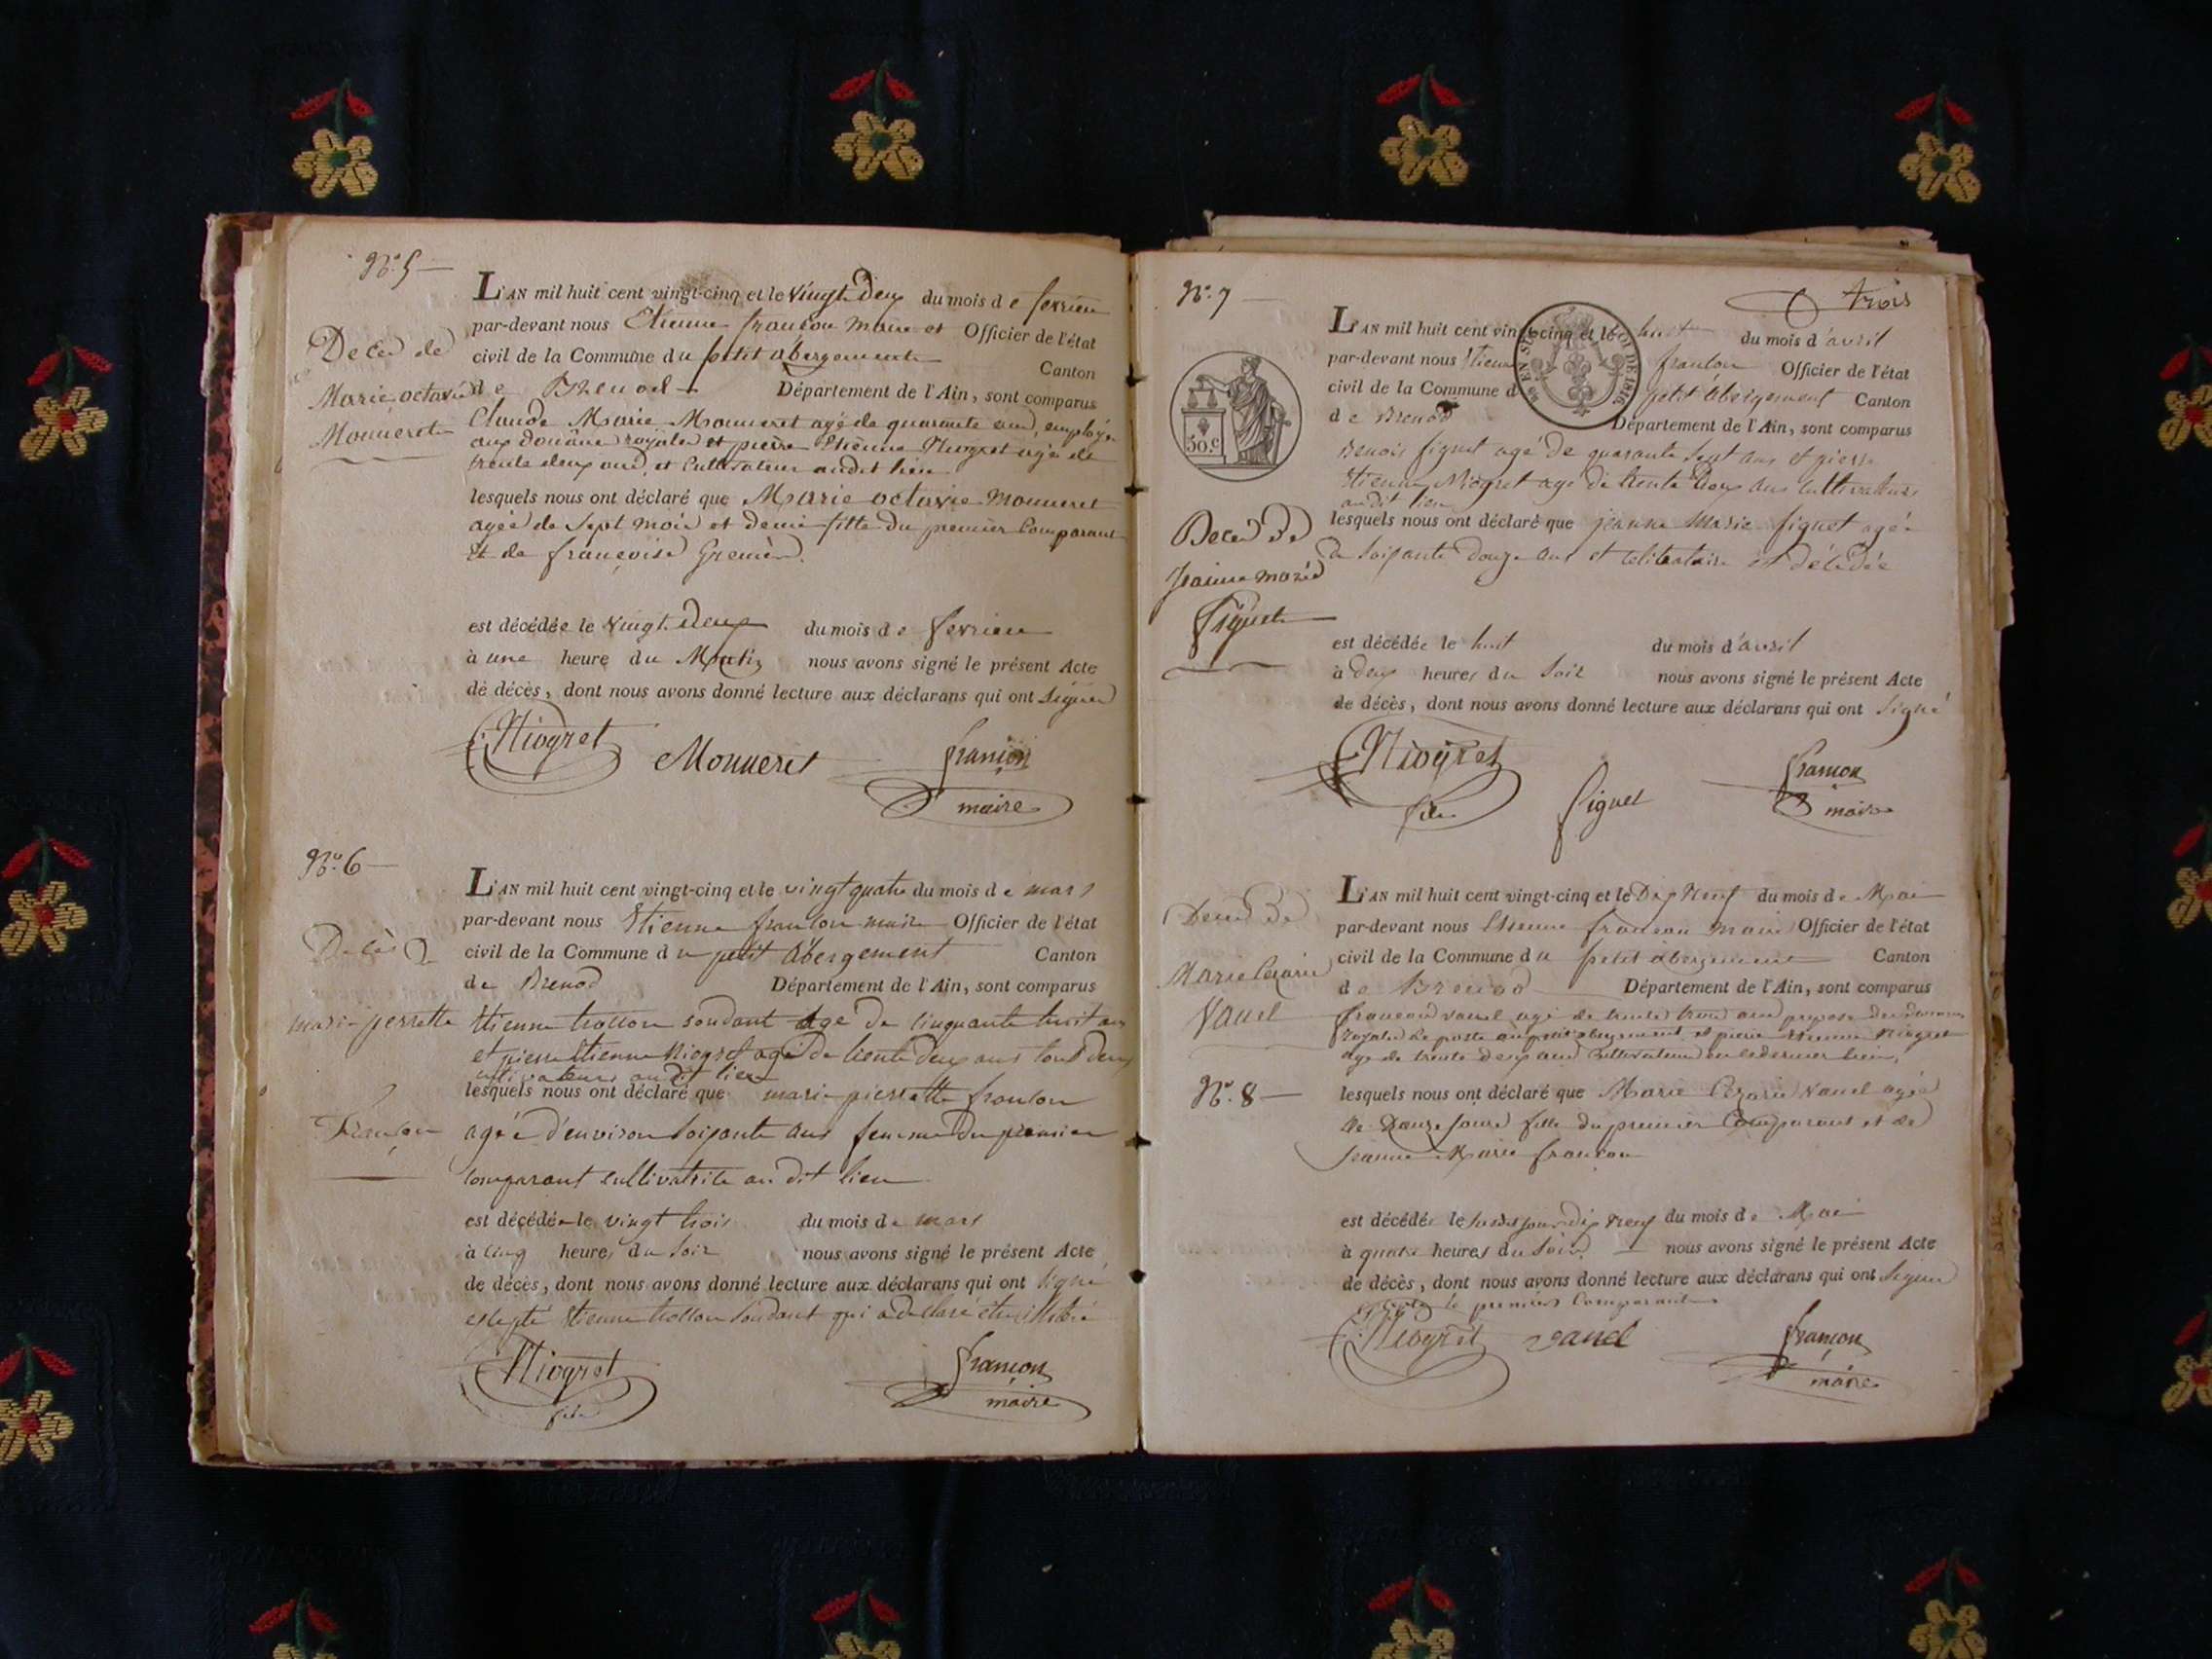 N.° 5
L'AN mil huit cent vingt-cinq et le vingt deux du mois de fevrier
par-devant nous Etienne françon maire et Officier de l'état
civil de la Commune du petit abergement Canton
de Brenod Département de l'Ain, sont comparus
Claude Marie Monneret agé de quarante ans, employé
aux douane royales et pierre Etienne Niogret agé de
trente deux ans et Cultivateur audit lieu
lesquels nous ont déclaré que Marie octavie Monneret
agée de Sept mois et demie fille du premier Comparant
Et de françoise Grenier
est décédée le vingt deux du mois de fevrier
à une heure du Matin nous avons signé le présent Acte
de décès, dont nous avons donné lecture aux déclarans qui ont signés
Decès de
Marie octavie
Monneret
Niogret Monneret françon
maire
N.° 6
L'AN mil huit cent vingt-cinq et le vingt quatre du mois de mars
par-devant nous Etienne françon maire Officier de l'état
civil de la Commune du petit abergement Canton
de Brenod Département de l'Ain, sont comparus
Etienne age de cinquante huit ans
et pierre Etienne Niogret agé de trente deux ans tous deux
cultivateurs audit lieu
lesquels nous ont déclaré que marie pierrette françon
agée d'environ soixante ans femme du premier
comparant cultivatrice au dit lieu
est décédée le vingt trois du mois de mars
à cinq heures du soir nous avons signé le présent Acte
de décès, dont nous avons donné lecture aux déclarans qui ont signé
excepté Etienne qui a declaré etre illitéré
Decès de
marie perrette
Françon
Niogret françon
fils maire
trois
N.° 7
L'AN mil huit cent vingt-cinq et le huit du mois d'avril
par-devant nous Etienne françon Officier de l'état
civil de la Commune du petit abergement Canton
de Brenod Département de l'Ain, sont comparus
Benoit figuet agé de quarante sept ans et pierre
Etienne Niogret agé de trente deux ans cultivateurs
audit lieu
lesquels nous ont déclaré que jeanne Marie figuet agée
de soixante douze ans et celibataire est décédée
est décédée le huit du mois d'avril
à deux heures du soir nous avons signé le présent Acte
de décès, dont nous avons donné lecture aux déclarans qui ont signé
50.c
LOI DE 1816
Decès de
Jeanne marie
figuet
Niogret figuet françon
fils maire
L'AN mil huit cent vingt-cinq et le Dix Neuf du mois de Mai
par-devant nous Etienne françon maire Officier de l'état
civil de la Commune du petit abergement Canton
de Brenod Département de l'Ain, sont comparus
françois vauel agé de trente trois ans préposé des douanes
royales de poste au petit abergement et pierre etienne Niogret
agé de trente deux ans Cultivateur au dernier lieu,
lesquels nous ont déclaré que Marie Cezarie vauel agée
de Douze jours fille du premier Comparant et de
jeanne Marie françon
est décédée le susdit jour dix neuf du mois de Mai
à quatre heures du soir. nous avons signé le présent Acte
de décès, dont nous avons donné lecture aux déclarans qui ont signés
le premier Comparant
Decès de
Marie Cezarie
Vauel
N.° 8
Niogret vauel françon
maire